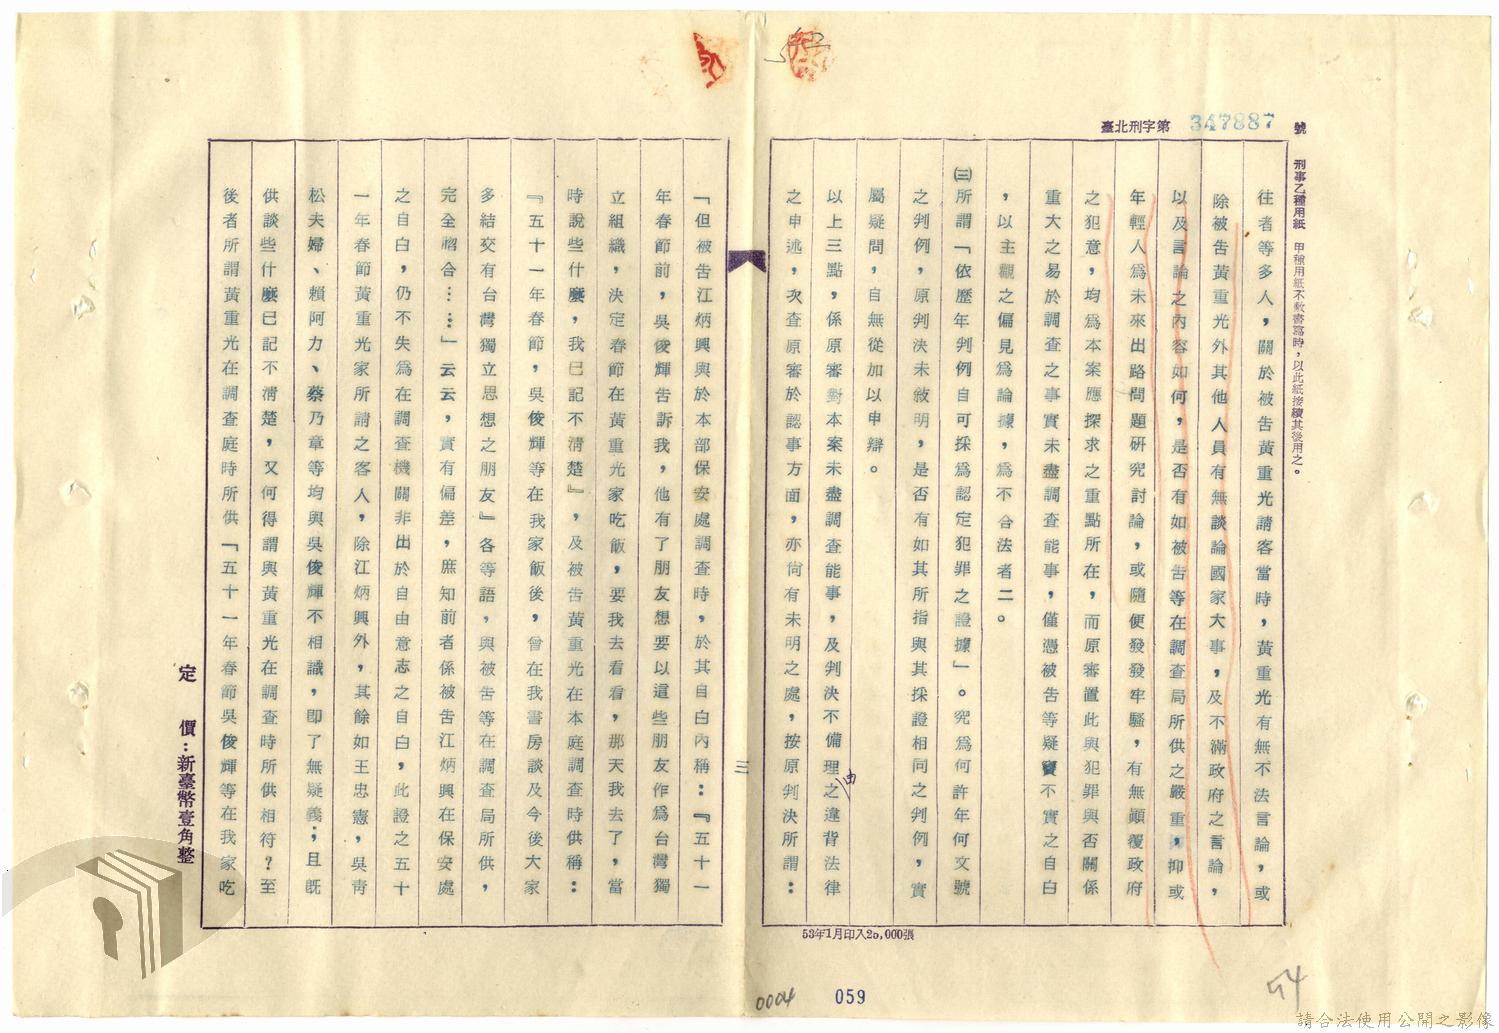 臺北刑字第 347887 號
刑事乙種用紙 甲種用紙不敷書寫時,以此紙接續其後用之。
往者等多人,關於被告黃重光請客當時,黃重光有無不法言論,或
除被告黃重光外其他人員有無談論國家大事,及不滿政府之言論,
以及言論之內容如何,是否有如被告等在調查局所供之嚴重,抑或
年輕人為未來出路問題研究討論,或隨便發發牢騷,有無顛覆政府
之犯意,均為本案應探求之重點所在,而原審置此與犯罪與否關係
重大之易於調查之事實未盡調查能事,僅憑被告等疑竇不實之自白
,以主觀之偏見為論據,為不合法者二。
㈢所謂「依歷年判例自可採為認定犯罪之證據」。究為何許年何文號
之判例,原判決未敘明,是否有如其所指與其採證相同之判例,實
屬疑問,自無從加以申辯。
以上三點,係原審對本案未盡調查能事,及判決不備理由之違背法律
之申述,次查原審於認事方面,亦尚有未明之處,按原判決所謂:
53年1月印入25,000張
三
「但被告江炳興與於本部保安處調查時,於其自白內稱:『五十一
年春節前,吳俊輝告訴我,他有了朋友想要以這些朋友作為台灣獨
立組織,決定春節在黃重光家吃飯,要我去看看,那天我去了,當
時說些什麼,我已記不清楚』,及被告黃重光在本庭調查時供稱:
『五十一年春節,吳俊輝等在我家飯後,曾在我書房談及今後大家
多結交有台灣獨立思想之朋友』各等語,與被告等在調查局所供,
完全脗合……」云云,實有偏差,庶知前者係被告江炳興在保安處
之自白,仍不失為在調查機關非出於自由意志之自白,此證之五十
一年春節黃重光家所請之客人,除江炳興外,其餘如王忠憲,吳青
松夫婦、賴阿力、蔡乃章等均與吳俊輝不相識,即了無疑義;且既
供談些什麼已記不清楚,又何得謂與黃重光在調查時所供相符?至
後者所謂黃重光在調查庭時所供「五十一年春節吳俊輝等在我家吃
定 價:新臺幣壹角整
0004
059
54
請合法使用公開之影像